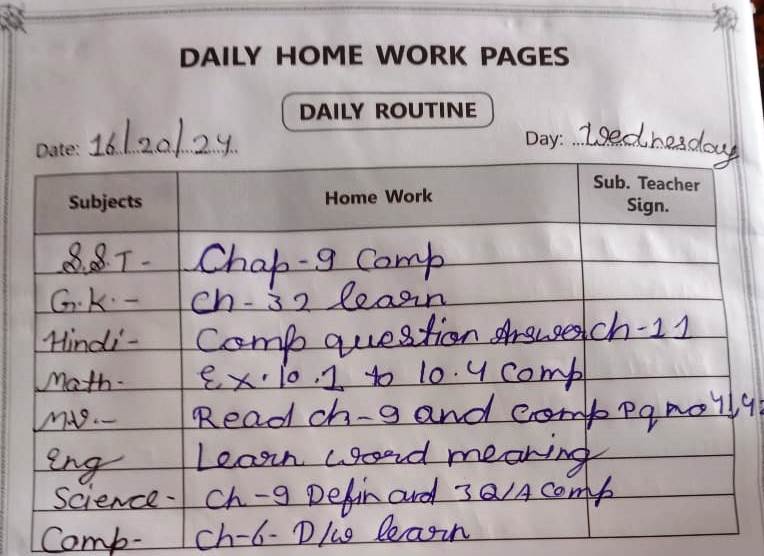 DAILY HOME WORK PAGES
DAILY ROUTINE
Date: 16/20/24 Day: Wednesday
Subjects Home Work Sub. Teacher Sign.
S.S.T- Chap-9 Comp
G.K.- Ch-32 learn
Hindi- Comp question Answer ch-11
Math- Ex.10.1 to 10.4 Comp
M.V.- Read ch-9 and comp pg no 41,42
Eng Learn word meaning
Science- Ch-9 Defin and 3Q/A comp
Comp- Ch-6- D/w learn